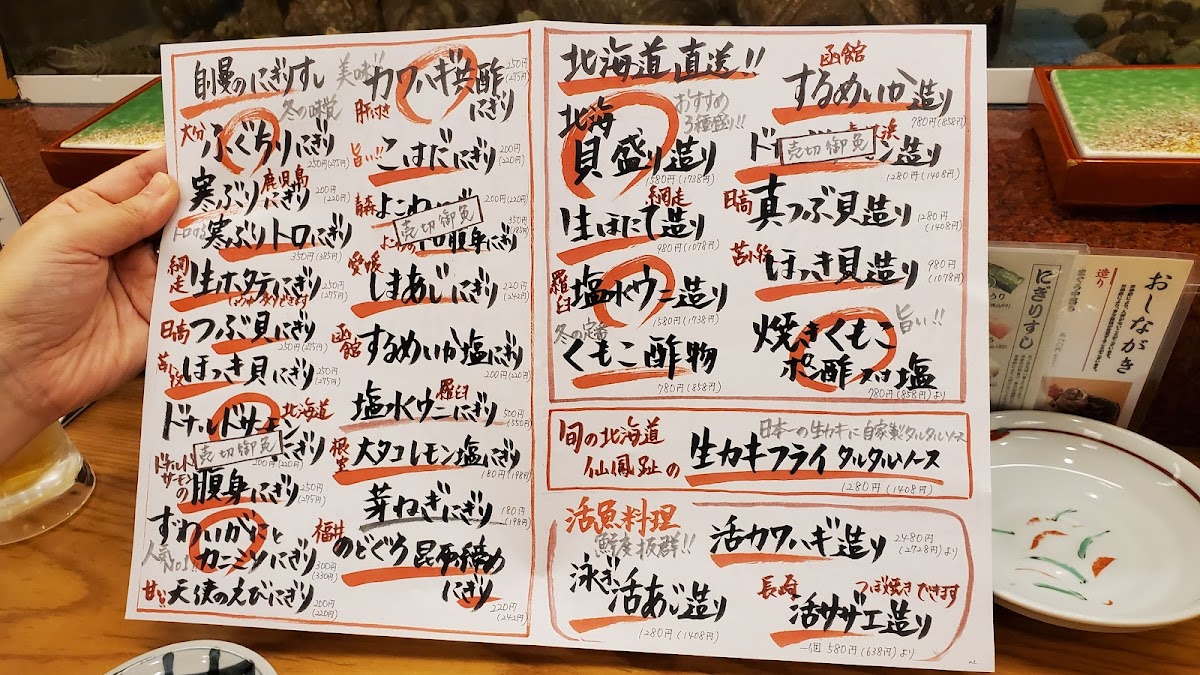 自慢のにぎりすし
冬の味覚
大分
ふぐちりにぎり
250円(275円)
鹿児島
寒ぶりにぎり
200円(220円)
トロける
寒ぶりトロにぎり
350円(385円)
網走
生ホタテにぎり
250円(275円)
日高
つぶ貝にぎり
250円(275円)
苫小牧
ほっき貝にぎり
250円(275円)
北海道
ドナルドサーモン
にぎり
売切御免
200円(220円)
ドナルドサーモンの
腹身にぎり
250円(275円)
人気No.1!!
ずわいがにと
カニミソにぎり
300円(330円)
甘い!!
天使のえびにぎり
200円(220円)
美味!!
肝付き
カワハギ共酢
にぎり
250円(275円)
旨い!!
こはだにぎり
200円(220円)
青森
よこわ
200円(220円)
売切御免
腹身にぎり
350円(385円)
愛媛
しまあじにぎり
220円(242円)
函館
するめいか塩にぎり
200円(220円)
羅臼
塩水ウニにぎり
500円(550円)
根室
大タコレモン塩にぎり
180円(198円)
芽ねぎにぎり
180円(198円)
福井
のどぐろ昆布締め
にぎり
220円(242円)
北海道直送!!
北海
貝盛り造り
おすすめ
3種盛り!!
1580円(1738円)
網走
生ほたて造り
980円(1078円)
羅臼
塩水ウニ造り
1580円(1738円)
冬の定番
くもこ酢物
780円(858円)
函館
するめいか造り
780円(858円)
売切御免
造り
1280円(1408円)
日高
真つぶ貝造り
1280円(1408円)
苫小牧
ほっき貝造り
980円(1078円)
旨い!!
焼きくもこ
ポン酢又は塩
780円(858円)より
旬の北海道
仙鳳趾の
日本一の生カキに自家製タルタルソース
生カキフライ タルタルソース
1280円(1408円)
活魚料理
鮮度抜群!!
泳ぎ
活あじ造り
1280円(1408円)
活カワハギ造り
2480円(2728円)より
長崎
つぼ焼きできます
活サザエ造り
一個 580円(638円)より
おしながき
造り
にぎりすし